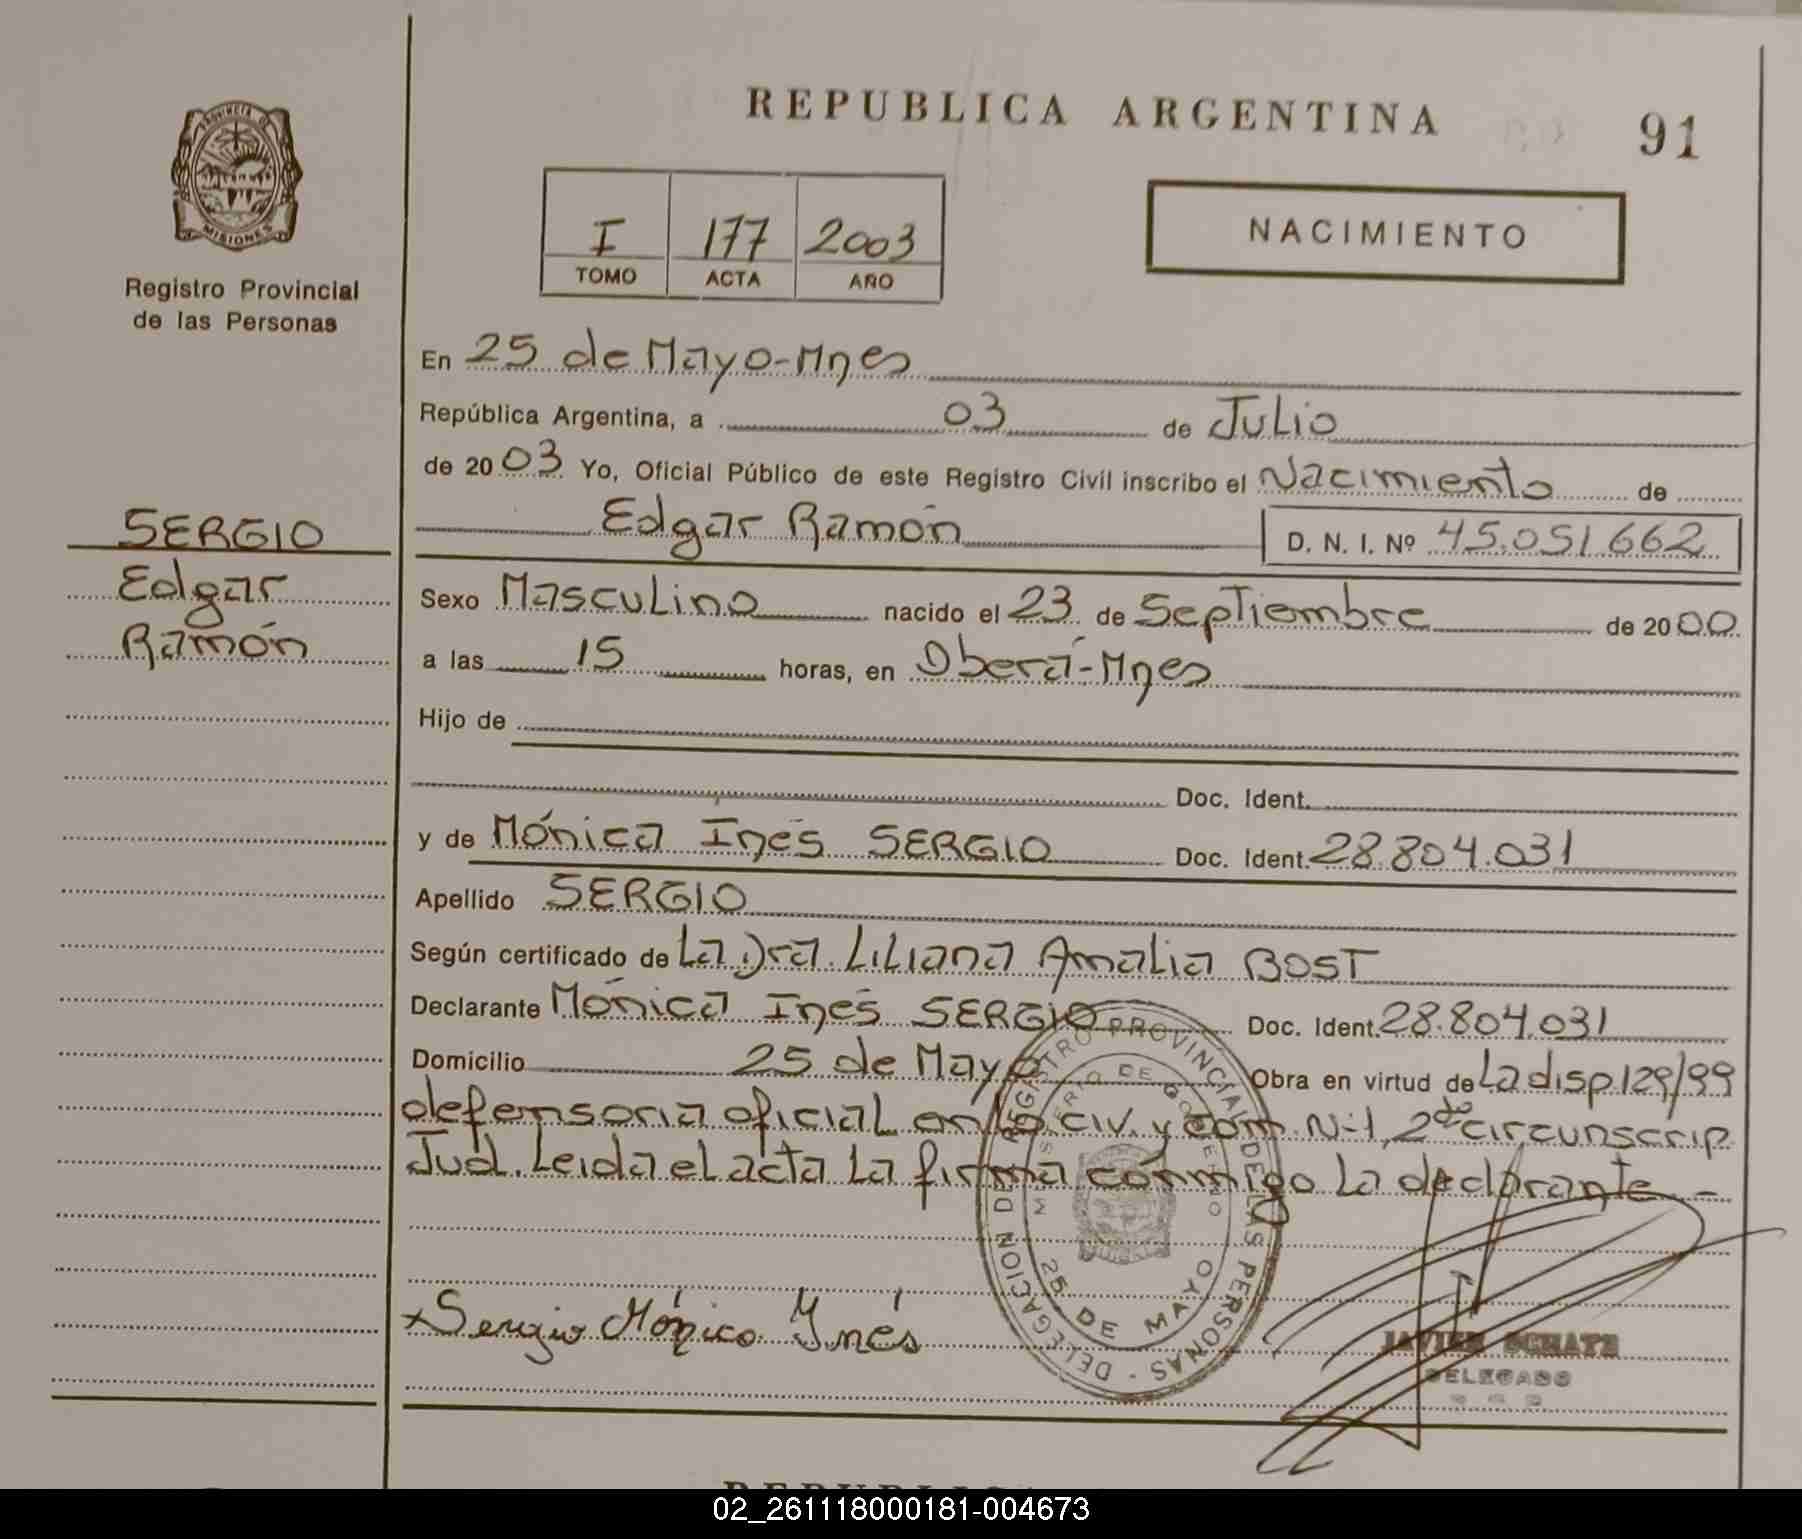 REPUBLICA ARGENTINA
91
PROVINCIA D
MISIONES
Registro Provincial
de las Personas
I 177 2003
TOMO ACTA AÑO
NACIMIENTO
En 25 de Mayo-Mnes
República Argentina, a 03 de Julio
de 2003 Yo, Oficial Público de este Registro Civil inscribo el Nacimiento de
Edgar Ramón D. N. I. Nº 45.051.662
SERGIO
Edgar
Ramón
Sexo Masculino nacido el 23 de Septiembre de 2000
a las 15 horas, en Oberá-Mnes
Hijo de
Doc. Ident.
y de Mónica Inés SERGIO Doc. Ident. 28.804.031
Apellido SERGIO
Según certificado de La Dra. Liliana Amalia BOST
Declarante Mónica Inés SERGIO Doc. Ident. 28.804.031
Domicilio 25 de Mayo Obra en virtud de La disp.129/99
defensoria oficial en lo civ. y com. N-1, 2da circunscrip
Jud. Leida el acta La firma conmigo La declarante -
DELEGACION DE REGISTRO PROVINCIAL DE LAS PERSONAS -
MINISTERIO DE GOBIERNO
25 DE MAYO
x Sergio Mónica Ynés
JAVIER
DELEGADO
02_261118000181-004673